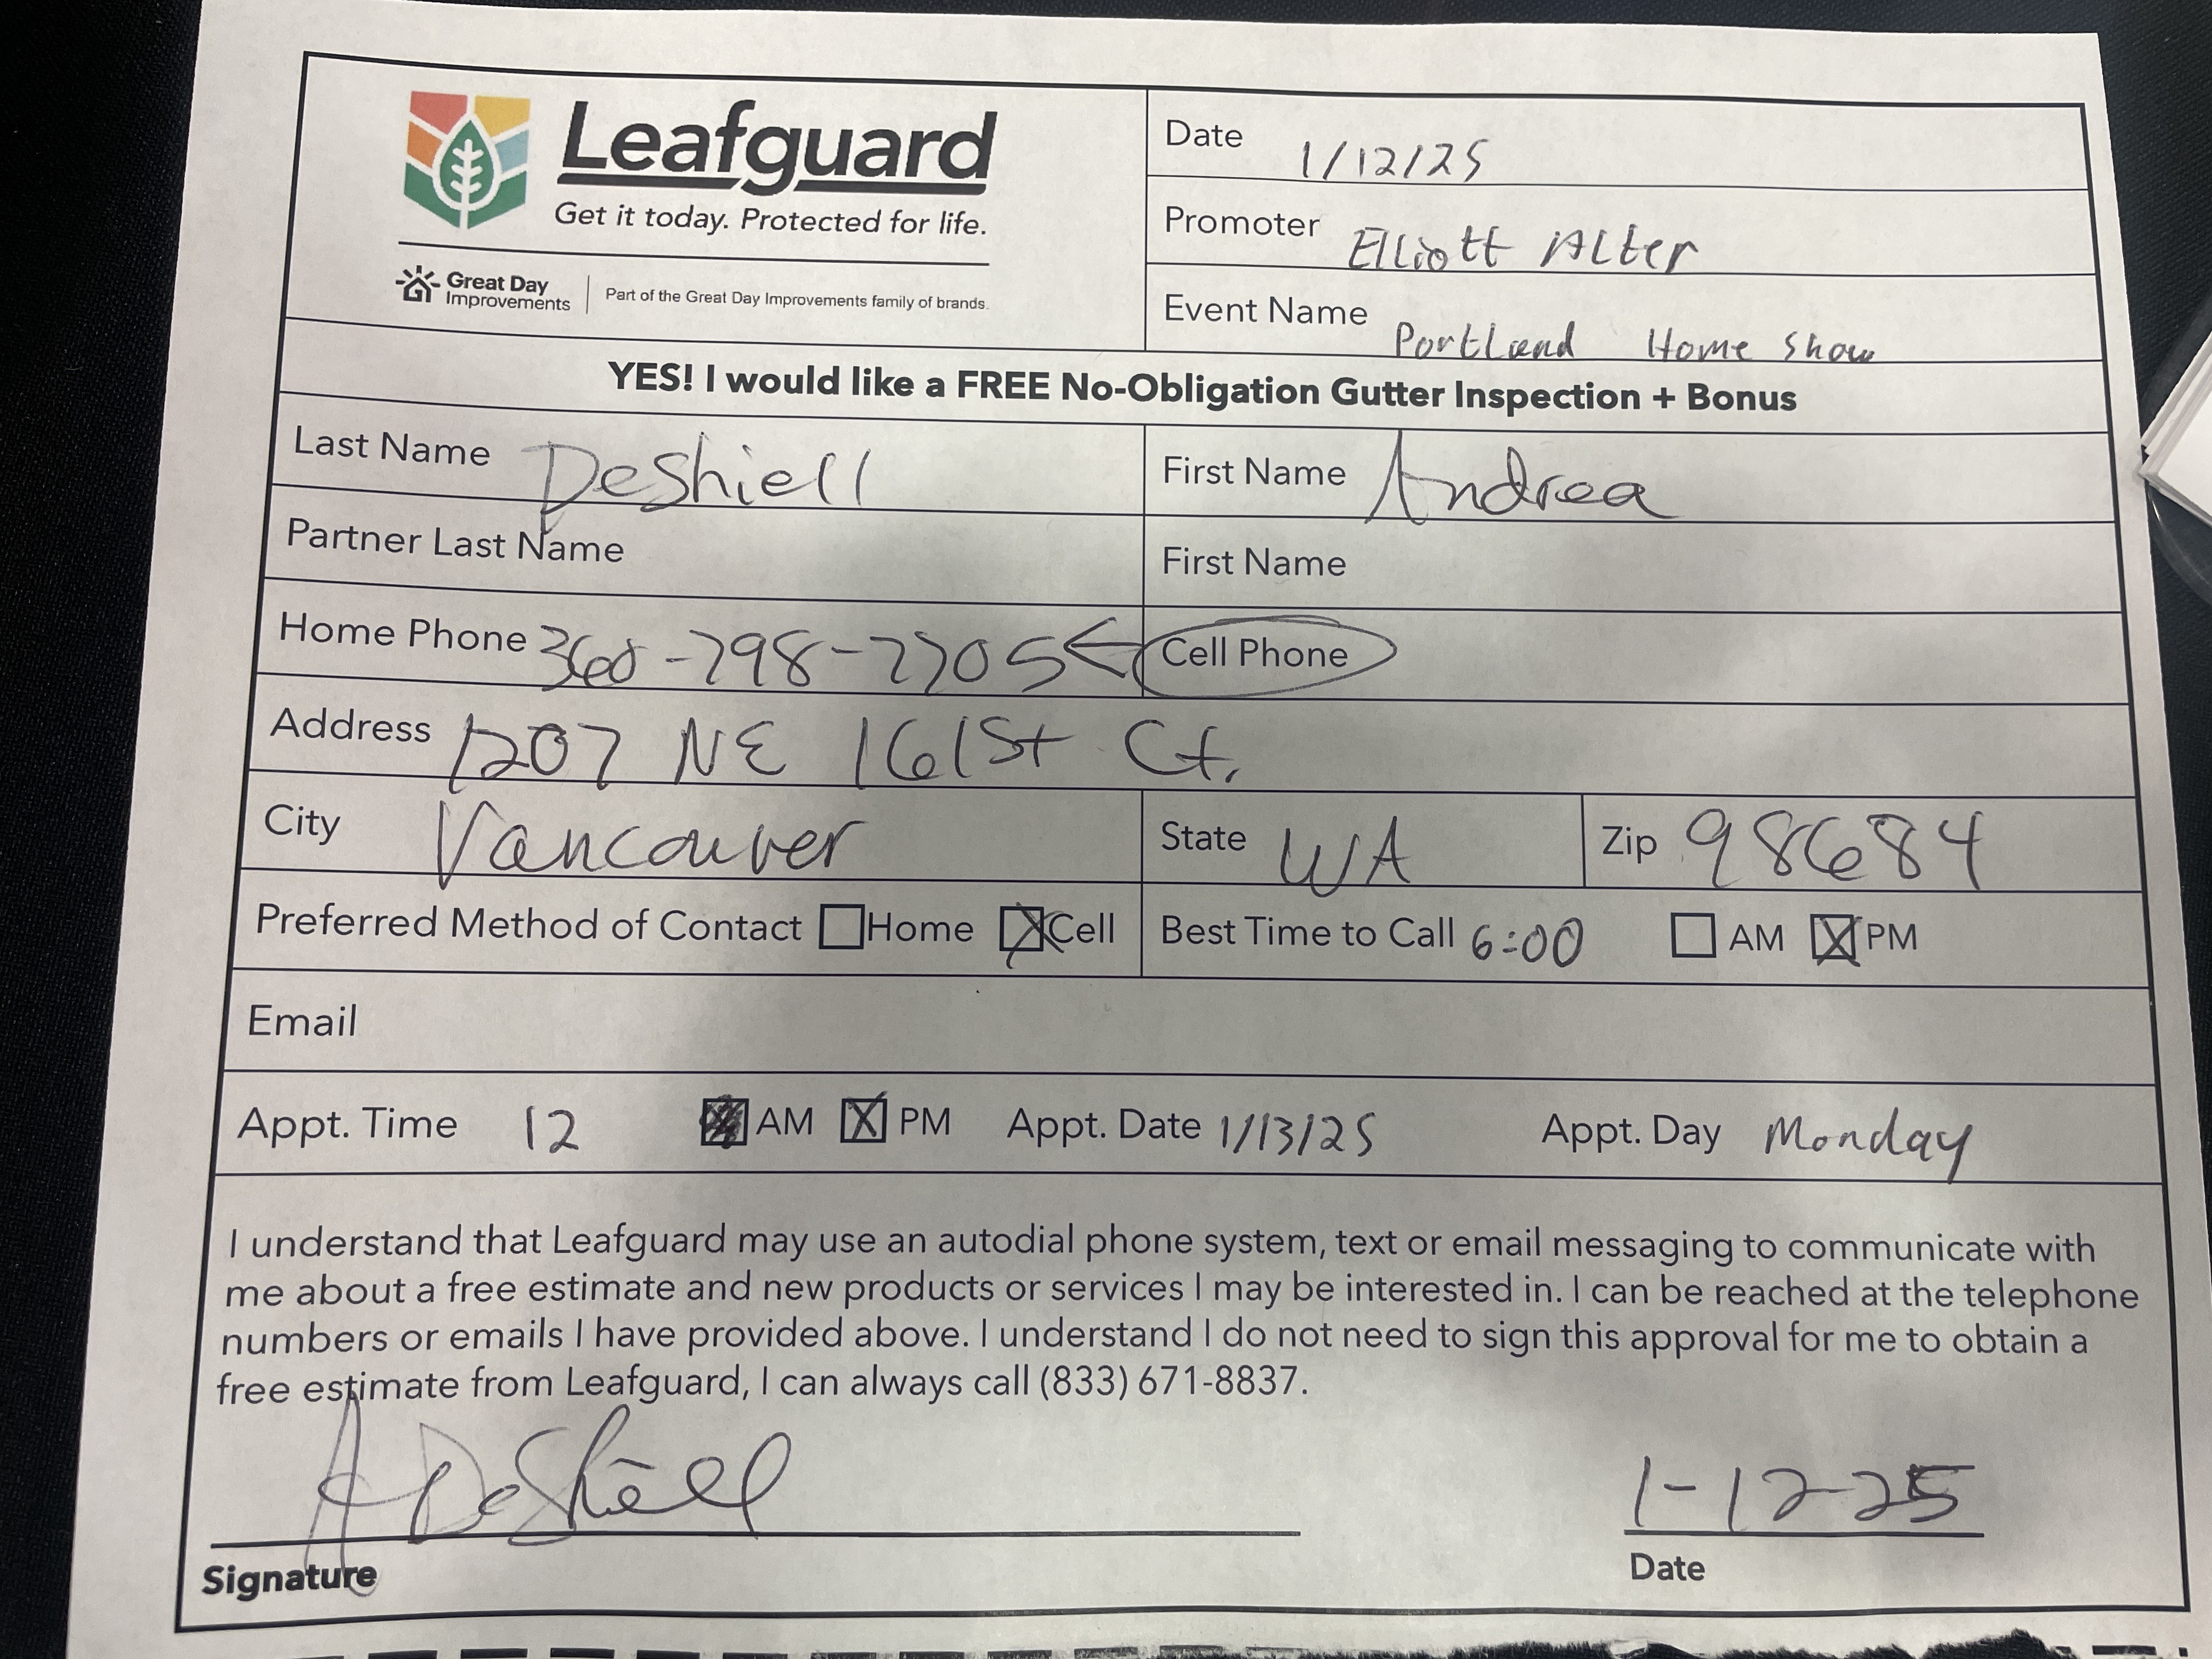 Leafguard
Get it today. Protected for life.
Great Day Improvements | Part of the Great Day Improvements family of brands.
Date 1/12/25
Promoter Elliott Alter
Event Name Portland Home Show
YES! I would like a FREE No-Obligation Gutter Inspection + Bonus
Last Name DeShiell First Name Andrea
Partner Last Name First Name
Home Phone 360-798-7705 ← Cell Phone
Address 1207 NE 161st Ct.
City Vancouver State WA Zip 98684
Preferred Method of Contact ☐ Home ☒ Cell Best Time to Call 6:00 ☐ AM ☒ PM
Email
Appt. Time 12 AM ☒ PM Appt. Date 1/13/25 Appt. Day Monday
I understand that Leafguard may use an autodial phone system, text or email messaging to communicate with
me about a free estimate and new products or services I may be interested in. I can be reached at the telephone
numbers or emails I have provided above. I understand I do not need to sign this approval for me to obtain a
free estimate from Leafguard, I can always call (833) 671-8837.
A DeShiell 1-12-25
Signature Date